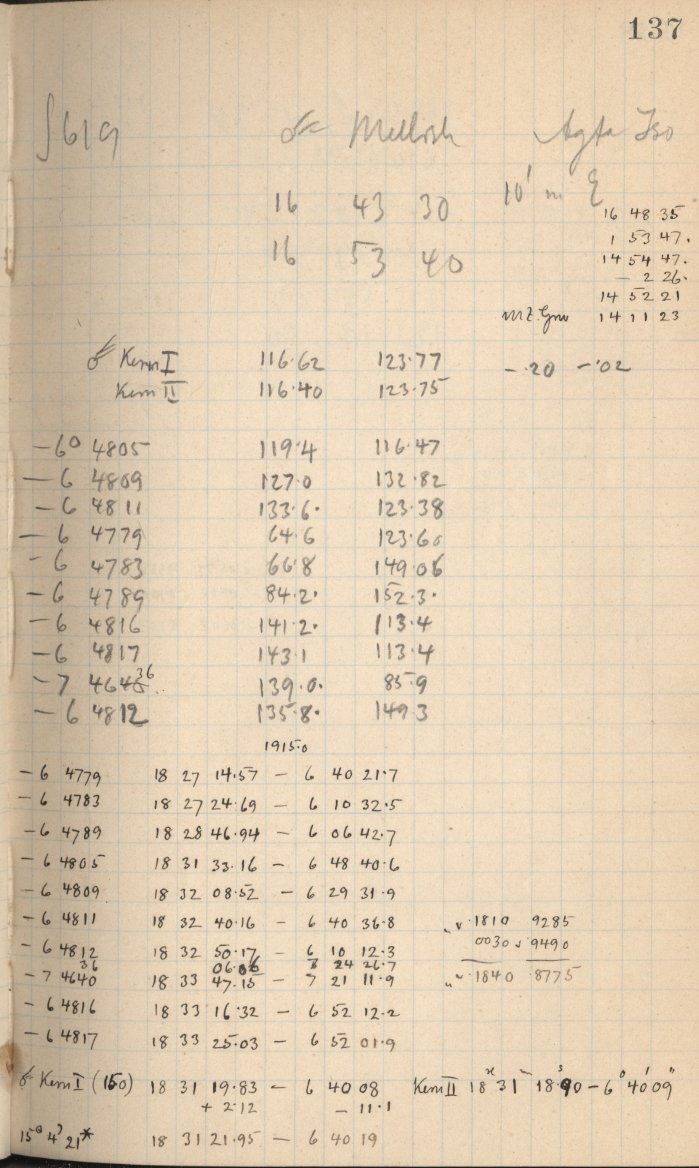 137
∫619 ☄ Mellish Agfa Iso
16 43 30 10' in ξ
16 48 35
1 53 47.
16 53 40 14 54 47.
— 2 26.
14 52 21
MZ.Gnw 14 11 23
☄ Kern I 116.62 123.77 — .20 — .02
Kern II 116.40 123.75
—6° 4805 119.4 116.47
—6 4809 127.0 132.82
—6 4811 133.6. 123.38
—6 4779 64.6 123.60
—6 4783 66.8 149.06
—6 4789 84.2. 152.3.
—6 4816 141.2. 113.4
—6 4817 143.1 113.4
36
—7 4645.. 139.0. 85.9
—6 4812 135.8. 149.3
1915.0
—6 4779 18 27 14.57 — 6 40 21.7
—6 4783 18 27 24.69 — 6 10 32.5
—6 4789 18 28 46.94 — 6 06 42.7
—6 4805 18 31 33.16 — 6 48 40.6
—6 4809 18 32 08.52 — 6 29 31.9
—6 4811 18 32 40.16 — 6 40 36.8 .1810 9285
0030 9490
—6 4812 18 32 50.17 — 6 10 12.3
36 06.06 7 24 26.7
—7 4640 18 33 47.15 — 7 21 11.9 .1840 .8775
—6 4816 18 33 16.32 — 6 52 12.2
—6 4817 18 33 25.03 — 6 52 01.9
☄ Kern I (150) 18 31 19.83 — 6 40 08 Kern II 18ʰ 31ᵐ 18ˢ.90 — 6° 40' 09"
+ 2.12 — 11.1
15ᵃ 4' 21* 18 31 21.95 — 6 40 19